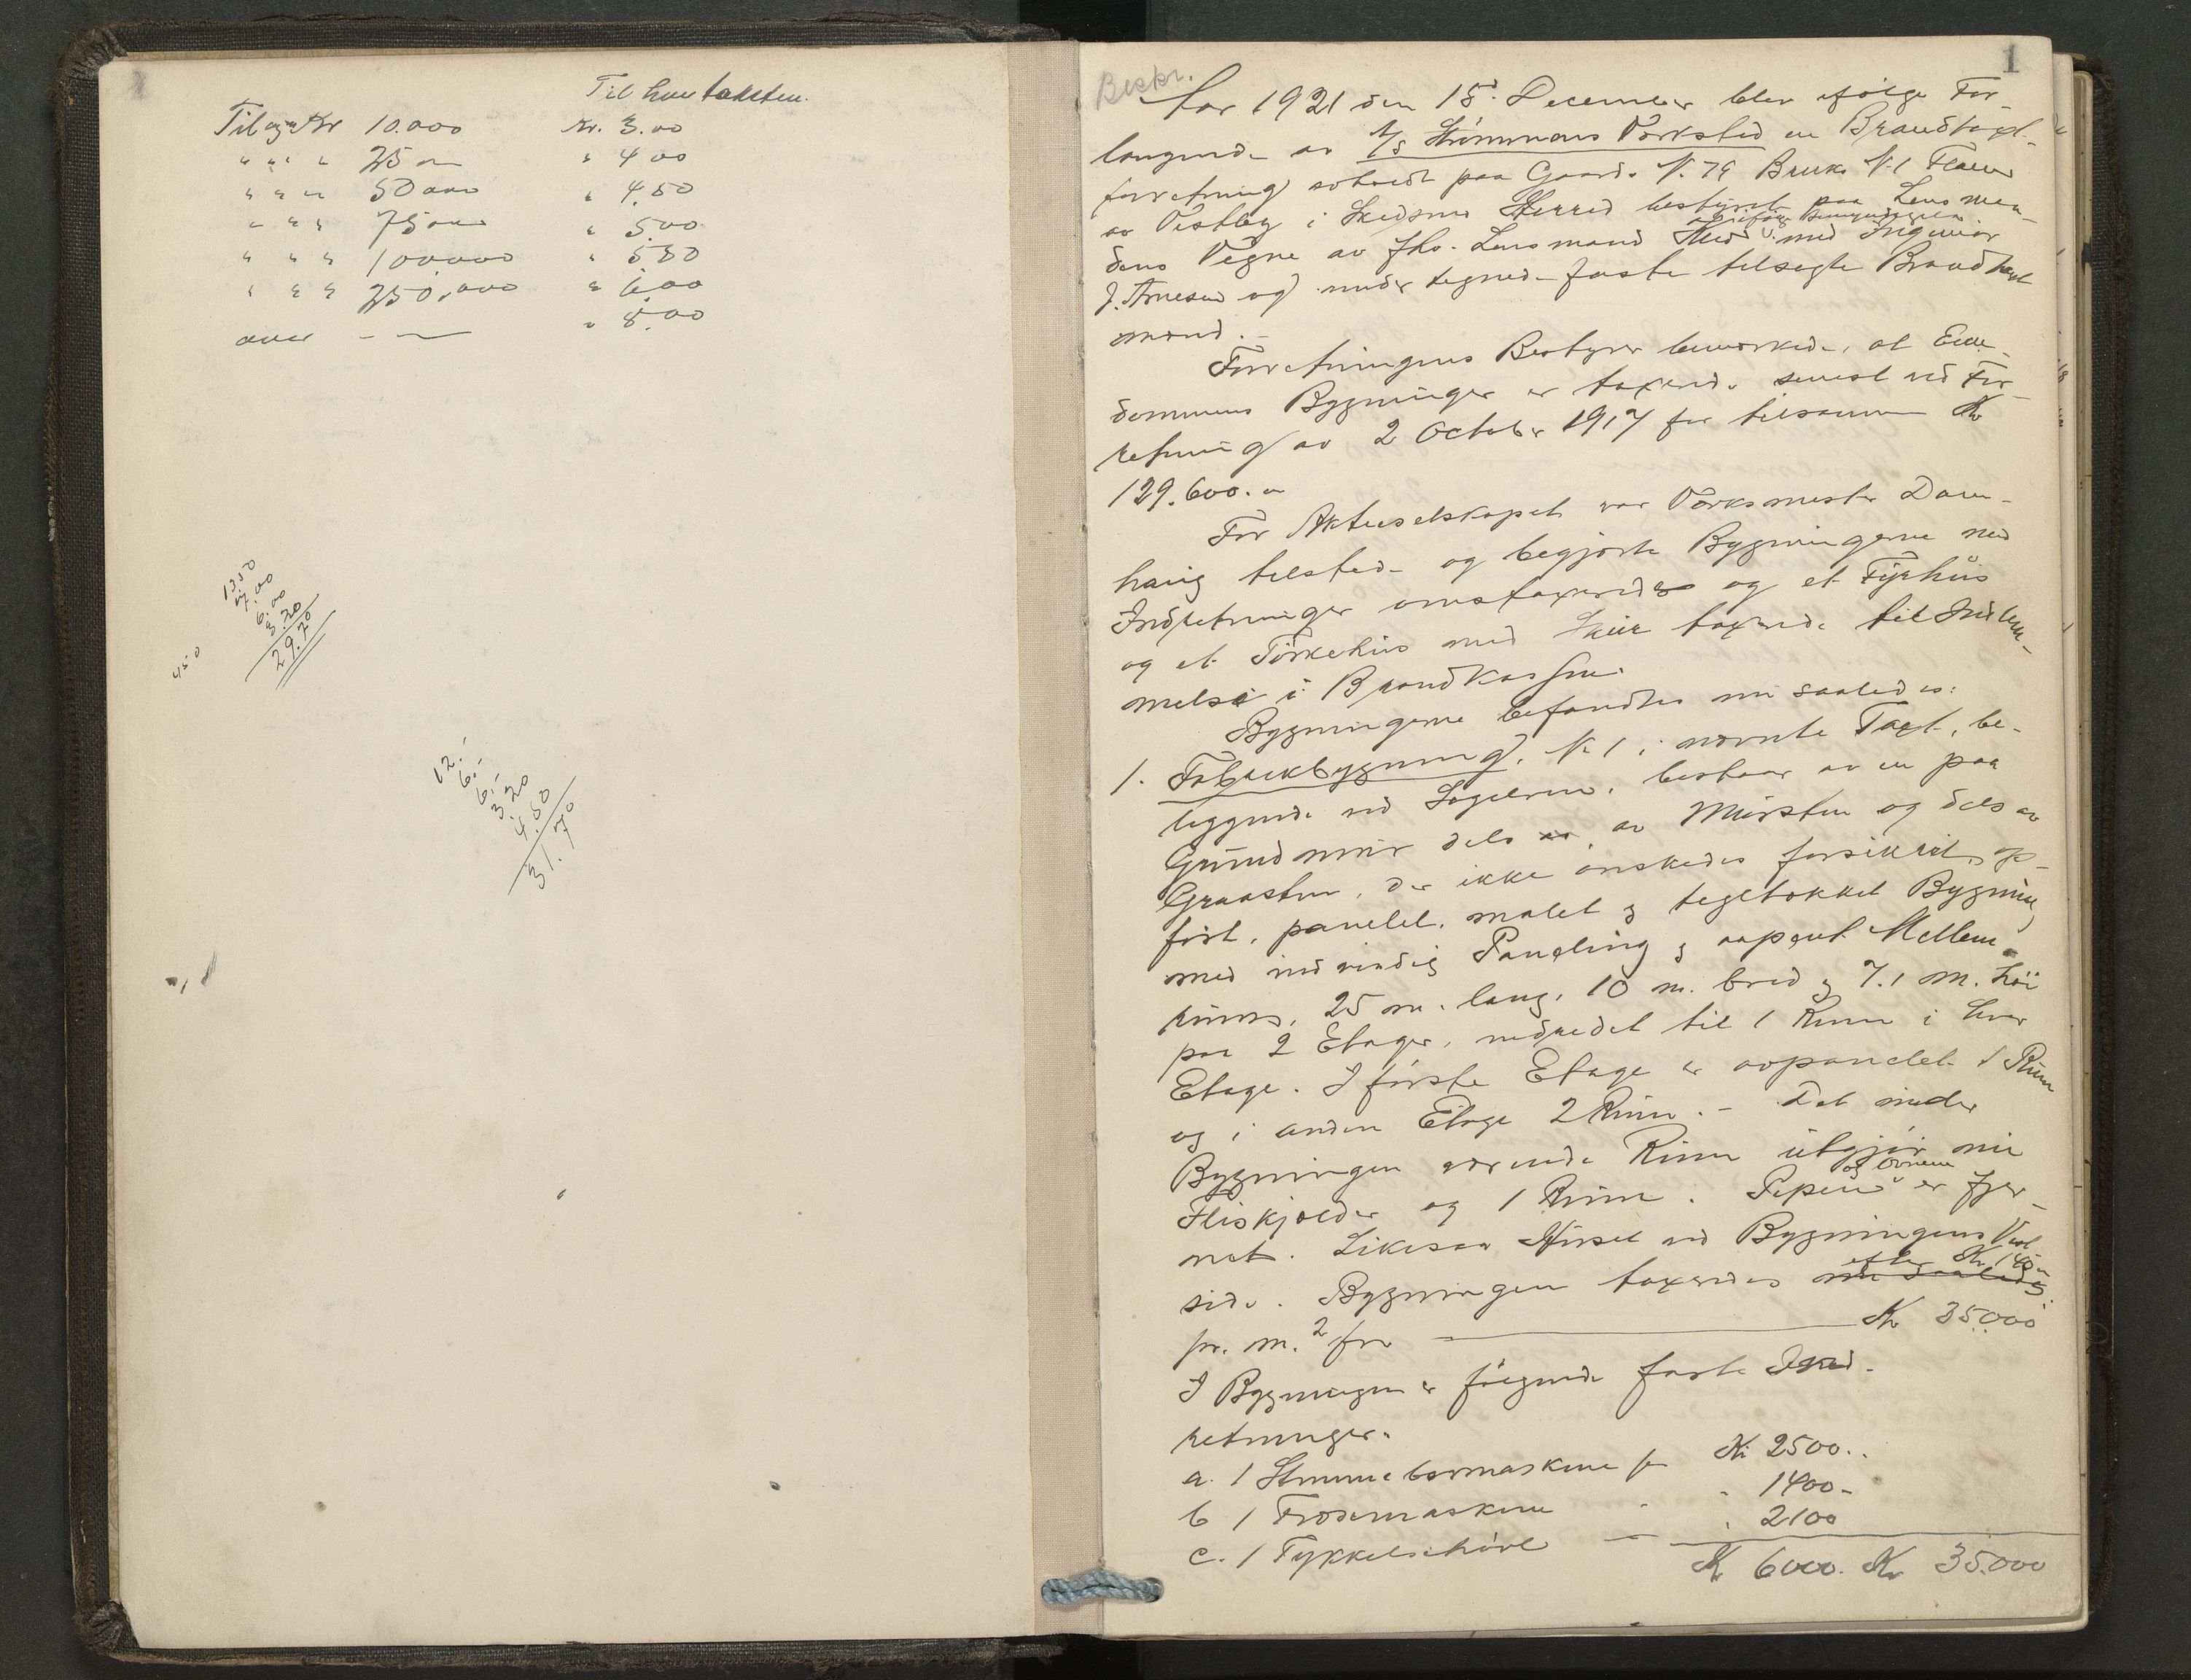 Til hver taksten.
Til og m Kr 10.000 Kr. 3.00
" " " 25 000 " 4 00
" " " 50 000 " 4.50
" " " 75 000 " 5.00
" " " 100.000 " 5 50
" " " 250.000 " 6.00
over - — " 8.00
13.50
7.00
6.00
3.20
29.70
4 5 0
12.-
6.-
6.-
3.20
4.50
31.70
1
Beskr.
Aar 1921 den 15d December blev ifølge For-
langende av A/S Strømmens Værksted en Brandtaxt-
forretning avholdt paa Gaards N. 79 Bruks N. 1
av Vestby i Skedsmo Herred bestyret paa Lensman-
dens Vegne av fhv. Lensmand med Ingeniør
J. Arnesen og undertegnede faste tilsagte Brandtaxt
mænd.-
Forretningens Bestyrer bemærkede, at Eien-
dommens Bygninger er taxeret senest ved For-
retning av 2 October 1917 for tilsammen Kr
129.600.00
For Aktieselskapet var Værksmester Dan-
havig tilstede og begjærte Bygningerne med
Indretninger omtaxerede og et Fyrhus
og et Tørkehus med Skur taxerede til Indlem-
melse i Brandkassen.
Bygningerne befandtes nu saaledes:
1. Fabrikbygning, N. 1 i nævnte Taxt, be-
liggende ved Sagelven, bestaar av en paa
Grundmur dels av Mursten og dels av
Graasten, der ikke ønskedes forsikret, op-
ført, panelet, malet og tegltækket Bygning
med indvendig Paneling og aapent Mellem-
rum, 25 m. lang, 10 m. bred og 7.1 m. høi
paa 2 Etager, indredet til 1 Rum i hver
Etage. I første Etage er avpanelet 1 Rum
og i anden Etage 2 Rum.- Det under
Bygningen værende Rum utgjør nu
Fliskjælder og 1 Rum. Pipen og ovnene er fjer-
net. Likesaa Skuret ved Bygningens Vest
side. Bygningen taxeredes nu saaledes efter Kr. 140.00
pr. m.2 for — Kr 35.000
I Bygningen er følgende faste Ind-
retninger.
a. 1 Stemmebormaskine for Kr 2500..
b 1 Fræsemaskine " " 1400-
c. 1 Tykkelsehøvl — " 2100
Kr 6000. Kr 35.000